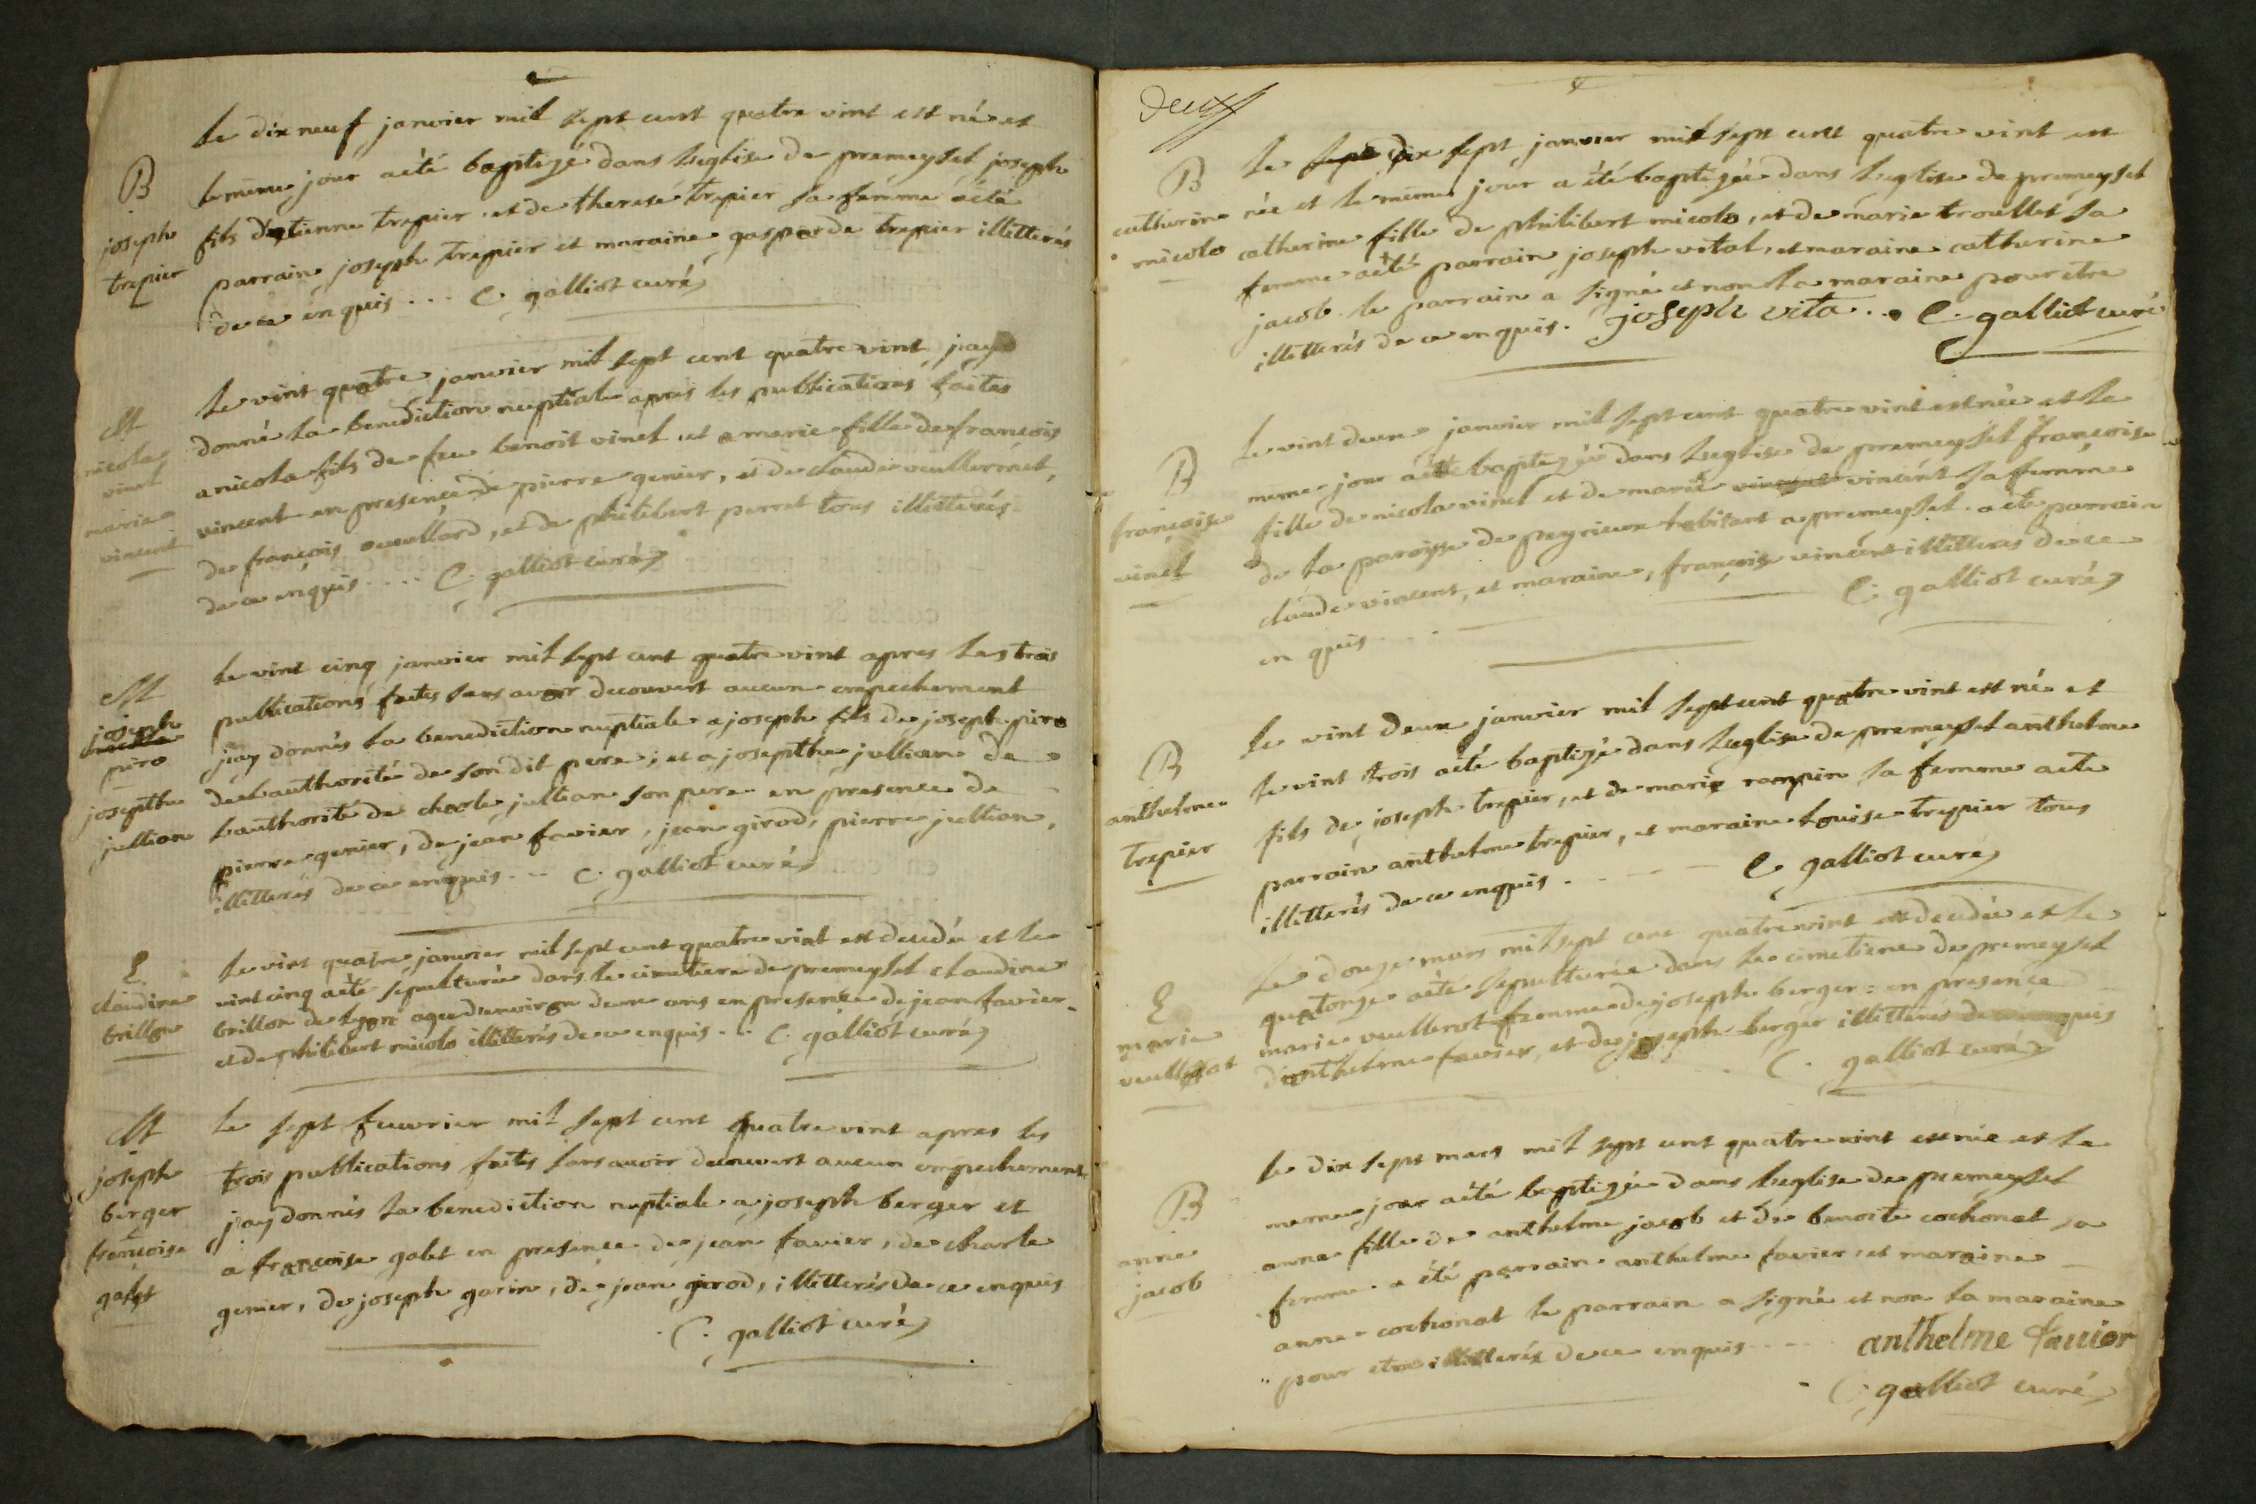 le dix neuf janvier mil sept cent quatre vint est né et
B
le meme jour a été baptizé dans l'eglise de premeyset joseph
joseph
trepier
fils d'etienne trepier et de therese trepier sa femme a été
parrain joseph trepier et maraine gasparde trepier illitterés
de ce enquis ... C. galliot curé
M
nicola
vinet
marie
vincent
le vint quatre janvier mil sept cent quatre vint j'ay
donné la benediction nuptiale apres les publications faites
a nicola fils de feu benoit vinet et a marie fille de francois
vincent en presence de pierre genier, et de claude veullermet,
de francois veuillard, et de philibert perret tous illitterés
de ce enquis .... C. galliot curé
M
joseph
piro
josepthe
jullian
le vint cinq janvier mil sept cent quatre vint apres les trois
publications faites sans avoir decouvert aucun empechement
j'ay donnés la benediction nuptiale a joseph fils de joseph piro
de l'authorité de son dit pere, et a josepthe jullian de
l'authorité de charle jullian son pere en presence de
pierre genier, de jean favier, jean girod, pierre jullian,
illitterés de ce enquis ... C. galliot curé
E
claudine
brillon
le vint quatre janvier mil sept cent quatre vint est deudée et le
vint cinq a été sepulturée dans le cimetiere de premeyset claudine
brillon de lyon agée d'environ deux ans en presence de jean favier
et de philibert micolo illitterés de ce enquis ... C. galliot curé
M
joseph
berger
francoise
galet
le sept feuvrier mil sept cent quatre vint apres les
trois publications faites sans avoir decouvert aucun empechement
j'ay donnés la benediction nuptiale a joseph berger et
a francoise galet en presence de jean favier, de charle
genier, de joseph garin, de jean girod, illitterés de ce enquis
C. galliot curé
deux
B
catherine
micolo
le sept dix sept janvier mil sept cent quatre vint est
née et le meme jour a été baptizée dans l'eglise de premeyset
catherine fille de philibert micolo, et de marie trouillet sa
femme a été parrain joseph vital, et maraine catherine
jacob. le parrain a signé et non la maraine pour etre
illitterés de ce enquis. joseph vita .. C. galliot curé
B
francoise
vinet
le vint deux janvier mil sept cent quatre vint est née et le
meme jour a été baptizée dans l'eglise de premeyset francoise
fille de nicola vinet et de marie vincent sa femme
de la paroisse de peyrieux habitant a premeyset. a été parrain
claude vincent, et maraine, francoise vincent illitterés de ce
en quis ... C. galliot curé
B
anthelme
trepier
le vint deux janvier mil sept cent quatre vint est né et
le vint trois a été baptizé dans l'eglise de premeyset anthelme
fils de joseph trepier, et de marie rampin sa femme a été
parrain anthelme trepier, et maraine louise trepier tous
illitterés de ce enquis .... C galliot curé
E
marie
veullerot
le douze mars mil sept cent quatre vint est deudée et le
quatorze a été sepulturée dans le cimetiere de premeyset
marie veullerot femme de joseph berger : en presence
d'anthelme favier, et de joseph berger illitterés de ce enquis
C. galliot curé
B
anne
jacob
le dix sept mars mil sept cent quatre vint est née et le
meme jour a été baptizée dans l'eglise de premeyset
anne fille de anthelme jacob et de benoite cochonat sa
femme. a été parrain anthelme favier, et maraine
anne cochonat le parrain a signé et non la maraine
pour etre illitterés de ce enquis .... anthelme favier
C. galliot curé